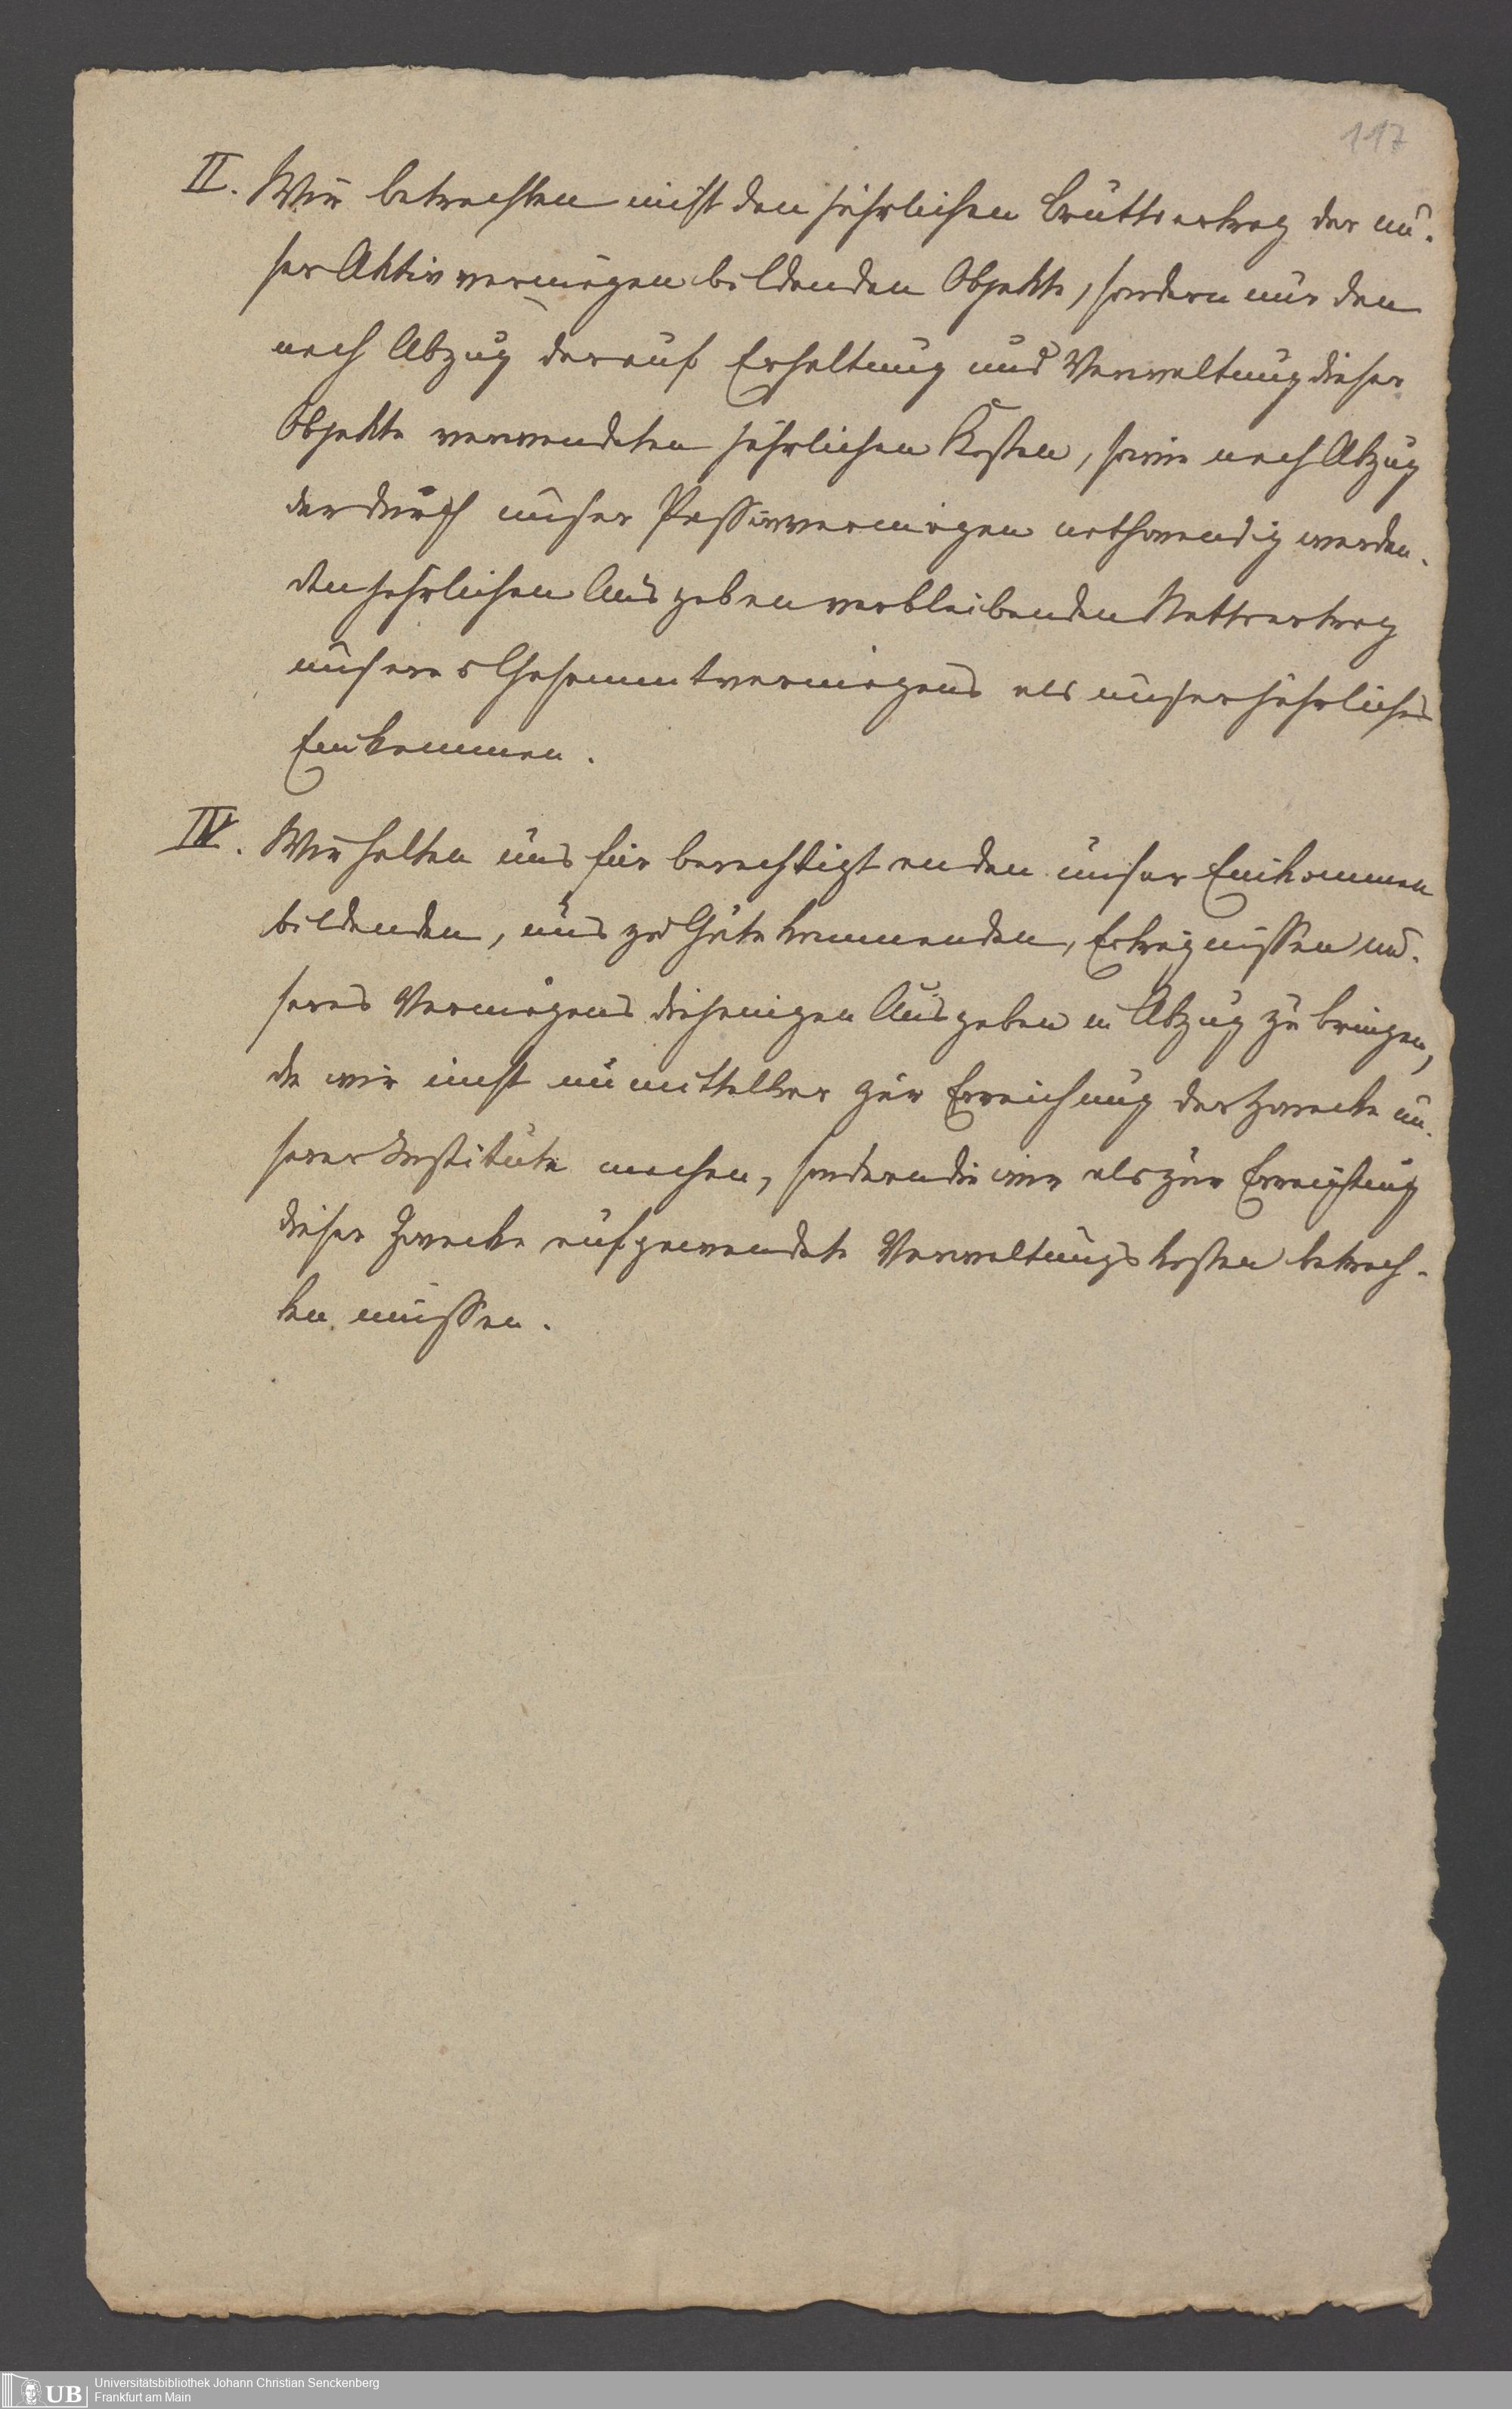 117
II. Wir betrachten nicht den jährlichen Bruttoertrag der un-
ser Aktivvermögen bildenden Objekte, sondern nur den
nach Abzug der auf Erhaltung und Verwaltung dieser
Objekte verwendeten jährlichen Kosten, sowie nach Abzug
der durch unser Passivvermögen nothwendig werden-
den jährlichen Ausgaben verbleibenden Nettoertrag
unseres Gesammtvermögens als unser jährliches
Einkommen.
IV. Wir halten uns für berechtigt an den unser Einkommen
bildenden, uns zu Gute kommenden, Erträgnissen un-
seres Vermögens diejenigen Ausgaben in Abzug zu bringen,
die wir nicht unmittelbar zur Erreichung der Zwecke un-
serer Institute machen, sondern die wir als zur Erreichung
dieser Zwecke aufgewendete Verwaltungskosten betrach-
ten müssen.
UB
Universitätsbibliothek Johann Christian Senckenberg
Frankfurt am Main